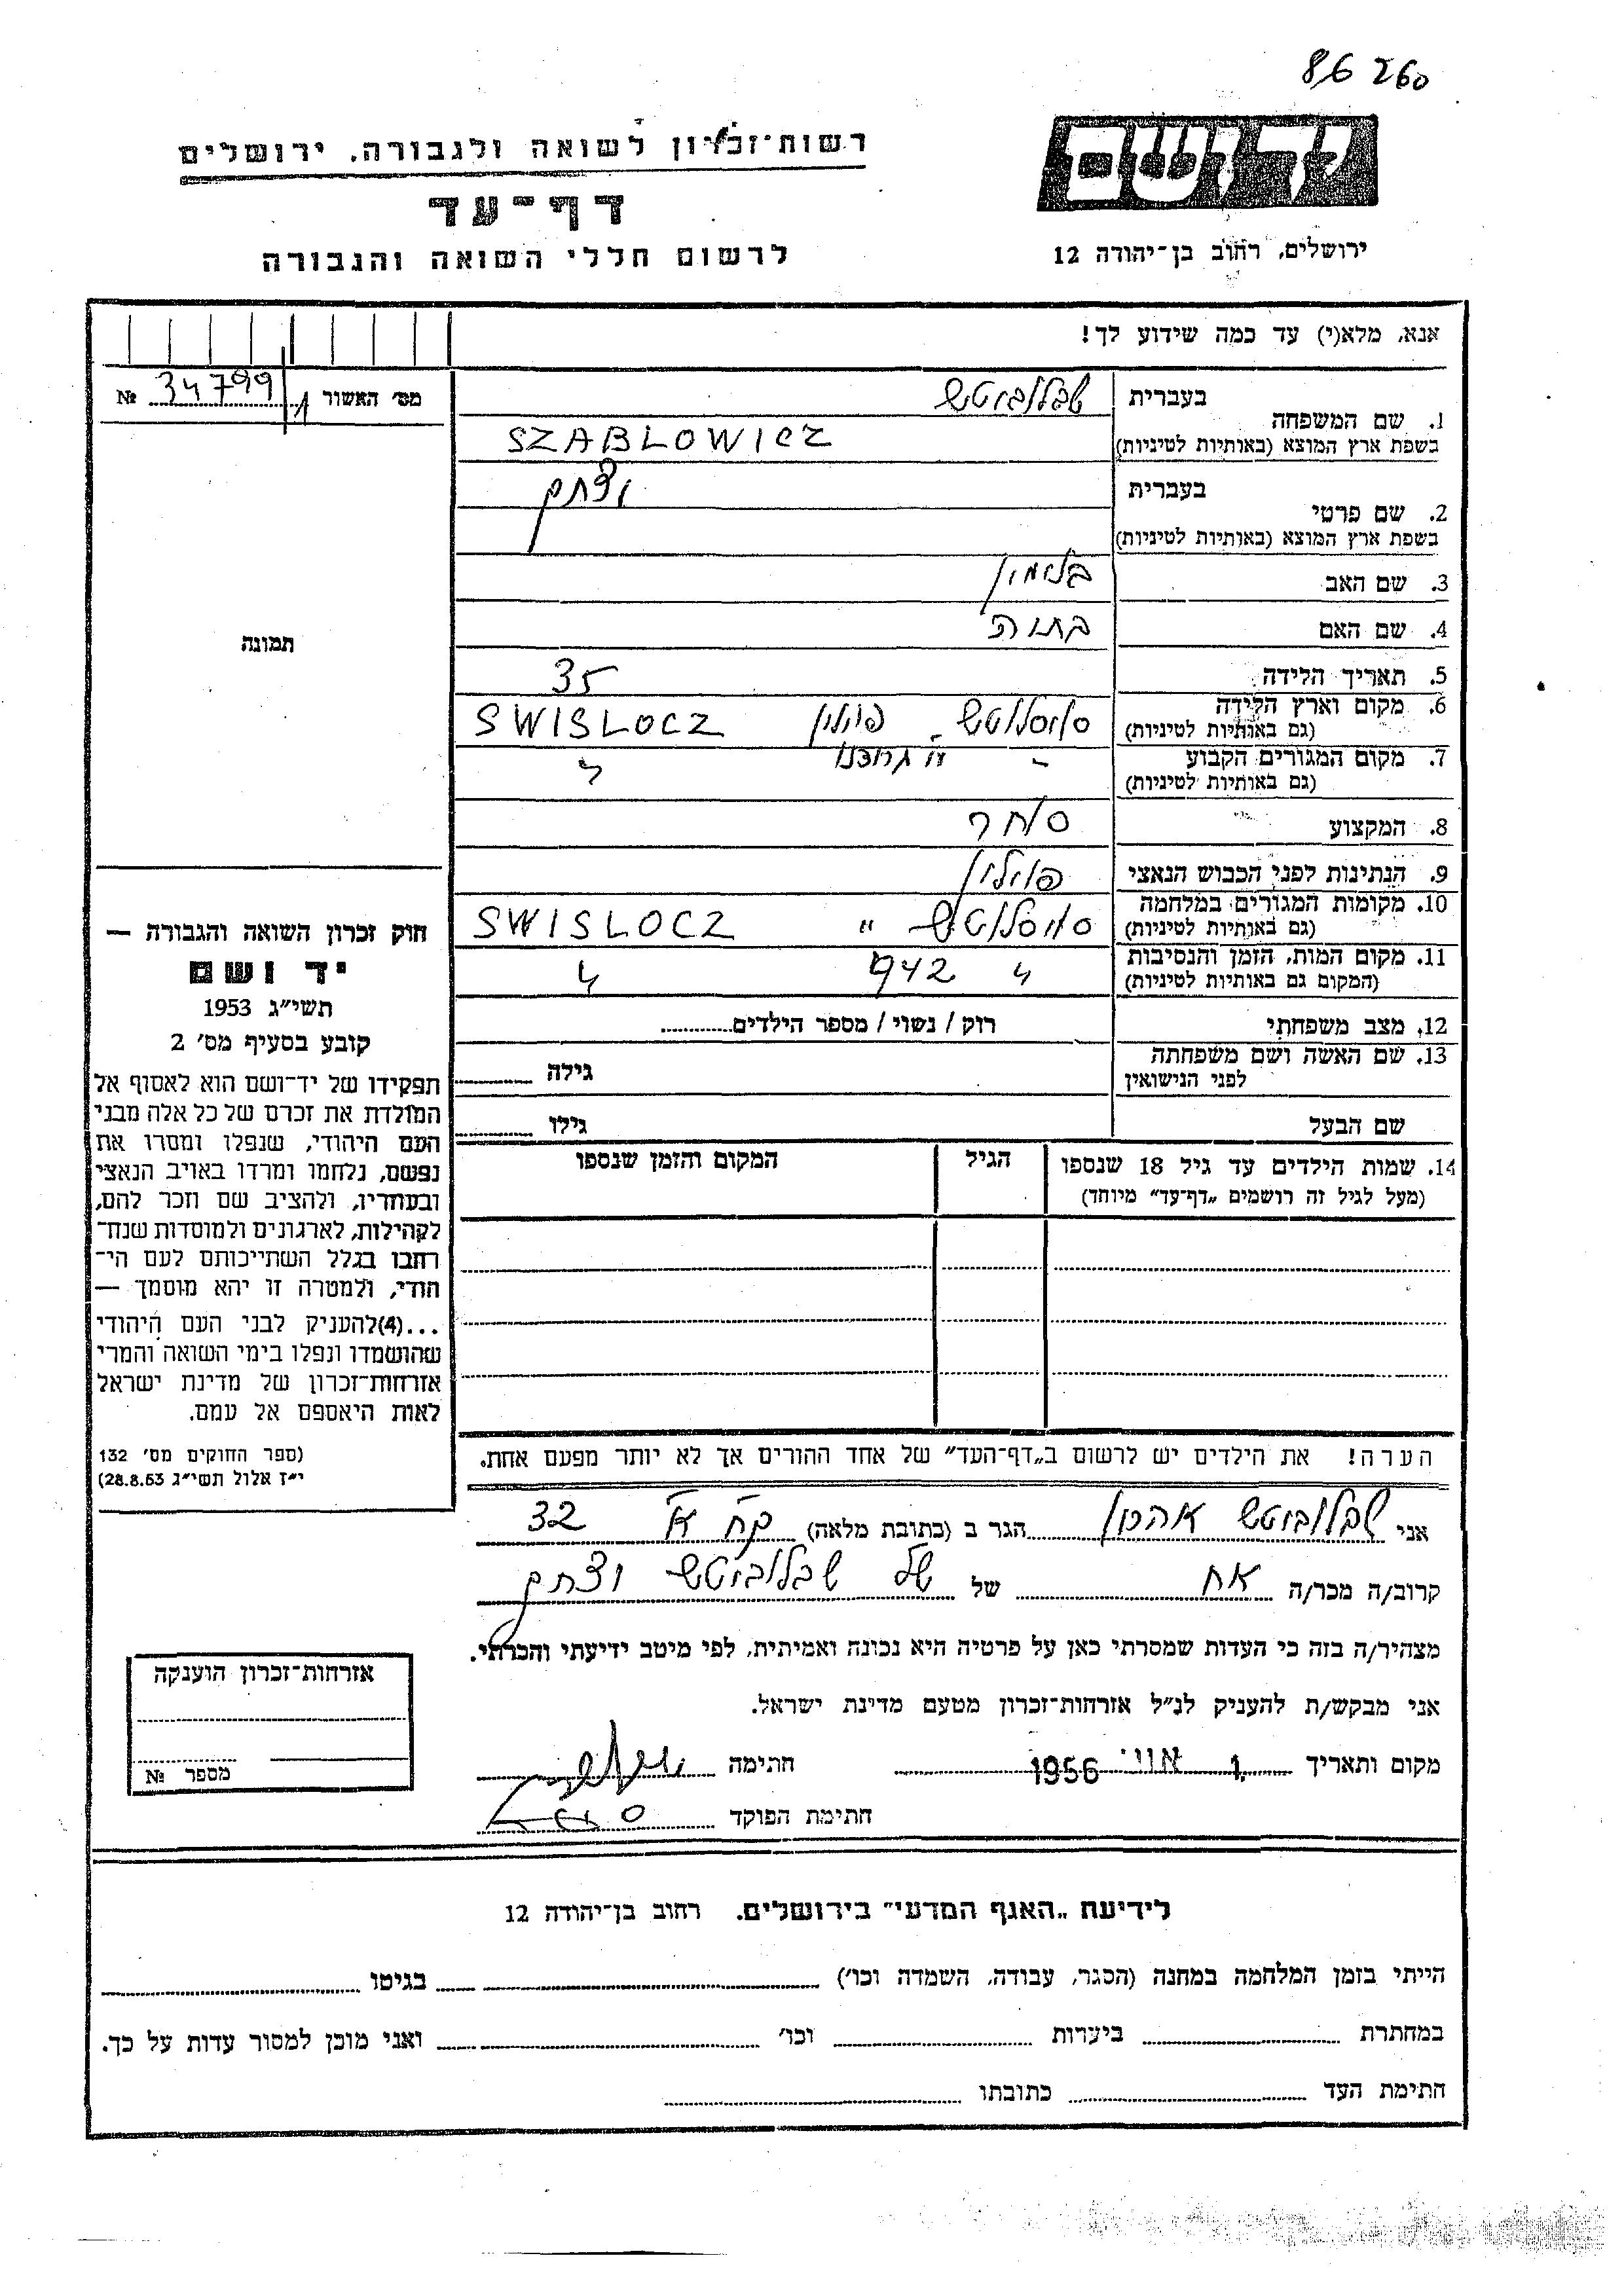 86260
רשות־זכרון לשואה ולגבורה, ירושלים
ידושם
דף־עד
לרשום חללי השואה והגבורה
ירושלים, רחוב בן־יהודה 12
אנא, מלא(י) עד כמה שידוע לך!
מס׳ האשור № 34799
1. שם המשפחה
בעברית שבלוביטש
בשפת ארץ המוצא (באותיות לטיניות) SZABLOWICZ
2. שם פרטי
בעברית יצחק
בשפת ארץ המוצא (באותיות לטיניות)
3. שם האב
4. שם האם
5. תאריך הלידה 35
6. מקום וארץ הלידה
(גם באותיות לטיניות) סויסלוטש פולין SWISLOCZ
7. מקום המגורים הקבוע
(גם באותיות לטיניות) " "
8. המקצוע סוחר
9. הנתינות לפני הכבוש הנאצי פולין
10. מקומות המגורים במלחמה
(גם באותיות לטיניות) סויסלוטש " SWISLOCZ
11. מקום המות, הזמן והנסיבות
(המקום גם באותיות לטיניות) " 942 "
12. מצב משפחתי רוק / נשוי / מספר הילדים
13. שם האשה ושם משפחתה
לפני הנישואין גילה
שם הבעל גילו
14. שמות הילדים עד גיל 18 שנספו הגיל המקום והזמן שנספו
(מעל לגיל זה רושמים „דף־עד״ מיוחד)
הערה! את הילדים יש לרשום ב„דף־העד״ של אחד ההורים אך לא יותר מפעם אחת.
תמונה
חוק זכרון השואה והגבורה —
יד ושם
תשי״ג 1953
קובע בסעיף מס׳ 2
תפקידו של יד־ושם הוא לאסוף אל
המולדת את זכרם של כל אלה מבני
העם היהודי, שנפלו ומסרו את
נפשם, נלחמו ומרדו באויב הנאצי
ובעוזריו, ולהציב שם וזכר להם,
לקהילות, לארגונים ולמוסדות שנח־
רחבו בגלל השתייכותם לעם הי־
הודי, ולמטרה זו יהא מוסמך —
...(4)להעניק לבני העם היהודי
שהושמדו ונפלו בימי השואה והמרי
אזרחות־זכרון של מדינת ישראל
לאות היאספם אל עמם.
(ספר החוקים מס׳ 132
י״ז אלול תשי״ג 28.8.53)
אני שבלוביטש אהרון הגר ב (כתובת מלאה) 32
קרוב/ה מכר/ה אח של של שבלוביטש יצחק
מצהיר/ה בזה כי העדות שמסרתי כאן על פרטיה היא נכונה ואמיתית, לפי מיטב ידיעתי והכרתי.
אני מבקש/ת להעניק לנ״ל אזרחות־זכרון מטעם מדינת ישראל.
מקום ותאריך 1956 חתימה
חתימת הפוקד
אזרחות־זכרון הוענקה
מספר №
לידיעת „האגף המדעי״ בירושלים. רחוב בן־יהודה 12
הייתי בזמן המלחמה במחנה (הסגר, עבודה, השמדה וכו׳) בגיטו
במחתרת ביערות וכו׳ ואני מוכן למסור עדות על כך.
חתימת העד כתובתו